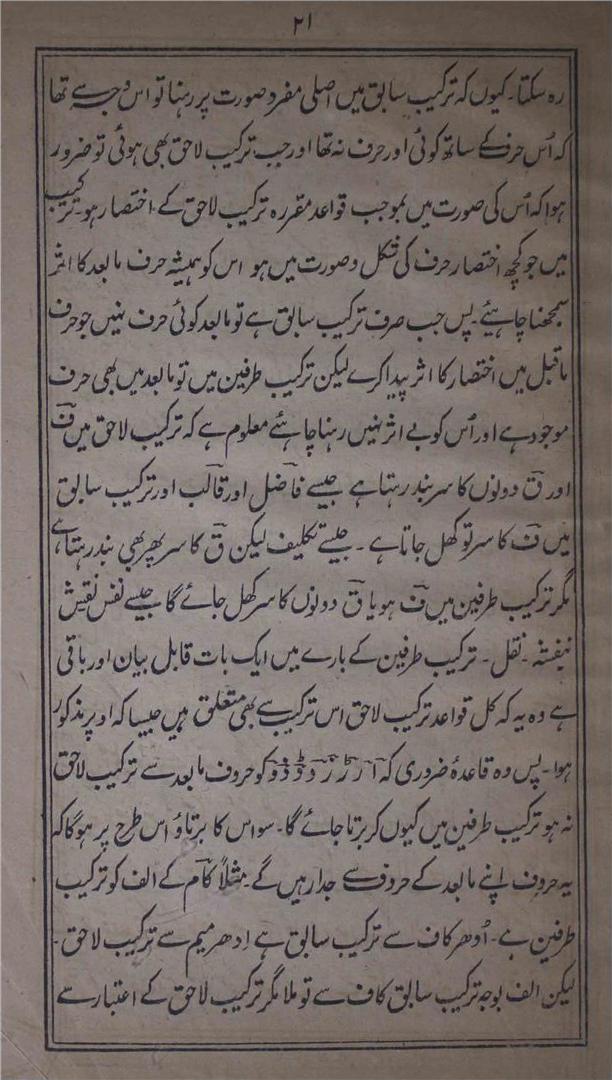 ۲۱
رہ سکتا۔ کیوں کہ ترکیب سابق میں اصلی مفرد صورت پر رہنا تو اس وجہ سے تھا
کہ اُس حرف کے ساتھ کوئی اور حرف نہ تھا اور جب ترکیب لاحق بھی ہوئی تو ضرور
ہوا کہ اُس کی صورت میں بموجب قواعد مقررہ ترکیب لاحق کے اختصار ہو۔ ترکیب
میں جو کچھ اختصار حرف کی شکل و صورت میں ہو اس کو ہمیشہ حرف مابعد کا اثر
سمجھنا چاہئیے۔ پس جب صرف ترکیب سابق ہے تو مابعد کوئی حرف نہیں جو حرف
ماقبل میں اختصار کا اثر پیدا کرے لیکن ترکیب طرفین میں تو مابعد میں بھی حرف
موجود ہے اور اُس کو بے اثر نہیں رہنا چاہئے معلوم ہے کہ ترکیب لاحق میں ف
اور ق دونوں کا سر بند رہتا ہے جیسے فاضل اور قالب اور ترکیب سابق
میں ف کا سر تو کھل جاتا ہے۔ جیسے تکلیف لیکن ق کا سر پھر بھی بند رہتا ہے
مگر ترکیب طرفین میں ف ہو یا ق دونوں کا سر کھل جائے گا جیسے نفس نقیش
بنفشہ۔ نقل۔ ترکیب طرفین کے بارے میں ایک بات قابل بیان اور باقی
ہے وہ یہ کہ کل قواعد ترکیب لاحق اس ترکیب سے بھی متعلق ہیں جیسا کہ اوپر مذکور
ہوا۔ پس وہ قاعدۂ ضروری کہ ا ر ڑ ز و د ڈ ذ کو حروف مابعد سے ترکیب لاحق
نہ ہو ترکیب طرفین میں کیوں کر برتا جائے گا۔ سو اس کا برتاؤ اس طرح پر ہوگا کہ
یہ حروف اپنے مابعد کے حروف سے جدا رہیں گے۔ مثلاً کام کے الف کو ترکیب
طرفین ہے۔ اُدھر کاف سے ترکیب سابق ہے اِدھر میم سے ترکیب لاحق۔
لیکن الف بوجہ ترکیب سابق کاف سے تو ملا مگر ترکیب لاحق کے اعتبار سے